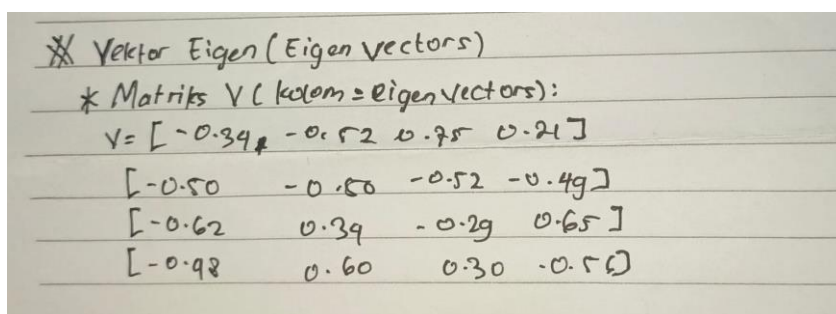 ※ Vektor Eigen (Eigen vectors)
* Matriks V (kolom = eigen vectors):
V = [-0.34, -0.52 0.75 0.21]
[-0.50 -0.50 -0.52 -0.49]
[-0.62 0.39 -0.29 0.65]
[-0.48 0.60 0.30 -0.56]